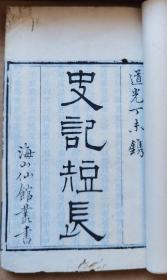 道光丁未鐫
史記短長
海山仙館叢書